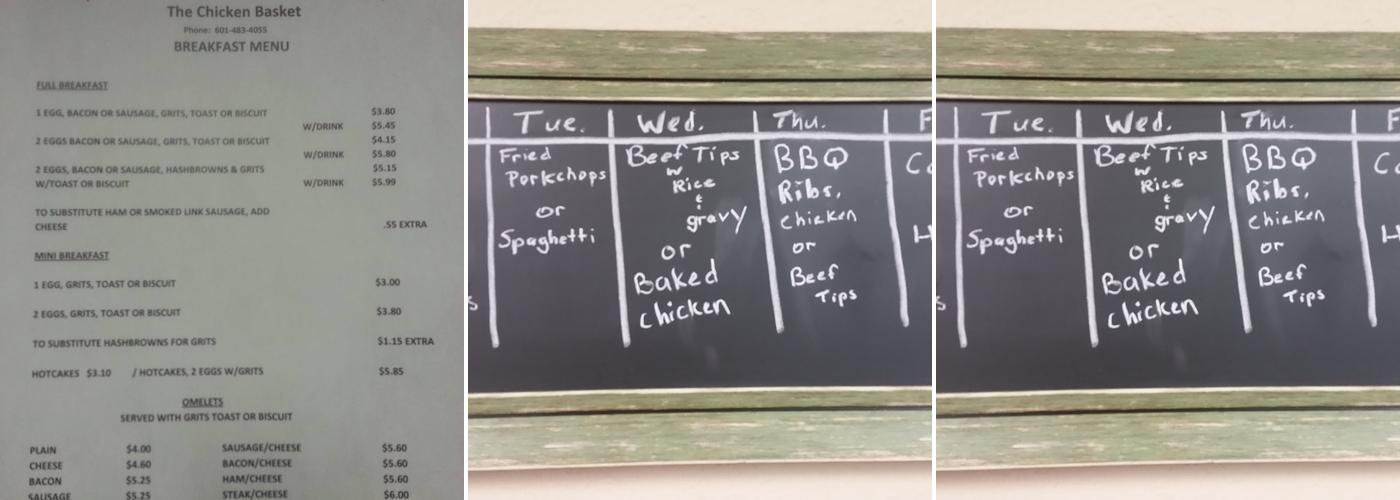 The Chicken Basket
Phone: 601-483-4055
BREAKFAST MENU
FULL BREAKFAST
1 EGG, BACON OR SAUSAGE, GRITS, TOAST OR BISCUIT $3.80
W/DRINK $5.45
2 EGGS BACON OR SAUSAGE, GRITS, TOAST OR BISCUIT $4.15
W/DRINK $5.80
2 EGGS, BACON OR SAUSAGE, HASHBROWNS & GRITS $5.15
W/TOAST OR BISCUIT W/DRINK $5.99
TO SUBSTITUTE HAM OR SMOKED LINK SAUSAGE, ADD
CHEESE .55 EXTRA
MINI BREAKFAST
1 EGG, GRITS, TOAST OR BISCUIT $3.00
2 EGGS, GRITS, TOAST OR BISCUIT $3.80
TO SUBSTITUTE HASHBROWNS FOR GRITS $1.15 EXTRA
HOTCAKES $3.10 / HOTCAKES, 2 EGGS W/GRITS $5.85
OMELETS
SERVED WITH GRITS TOAST OR BISCUIT
PLAIN $4.00 SAUSAGE/CHEESE $5.60
CHEESE $4.60 BACON/CHEESE $5.60
BACON $5.25 HAM/CHEESE $5.60
SAUSAGE $5.25 STEAK/CHEESE $6.00
Tue.
Fried
Porkchops
or
Spaghetti
Wed.
Beef Tips
w
Rice
&
gravy
or
Baked
chicken
Thu.
BBQ
Ribs,
chicken
or
Beef
Tips
Tue.
Fried
Porkchops
or
Spaghetti
Wed.
Beef Tips
w
Rice
&
gravy
or
Baked
chicken
Thu.
BBQ
Ribs,
chicken
or
Beef
Tips